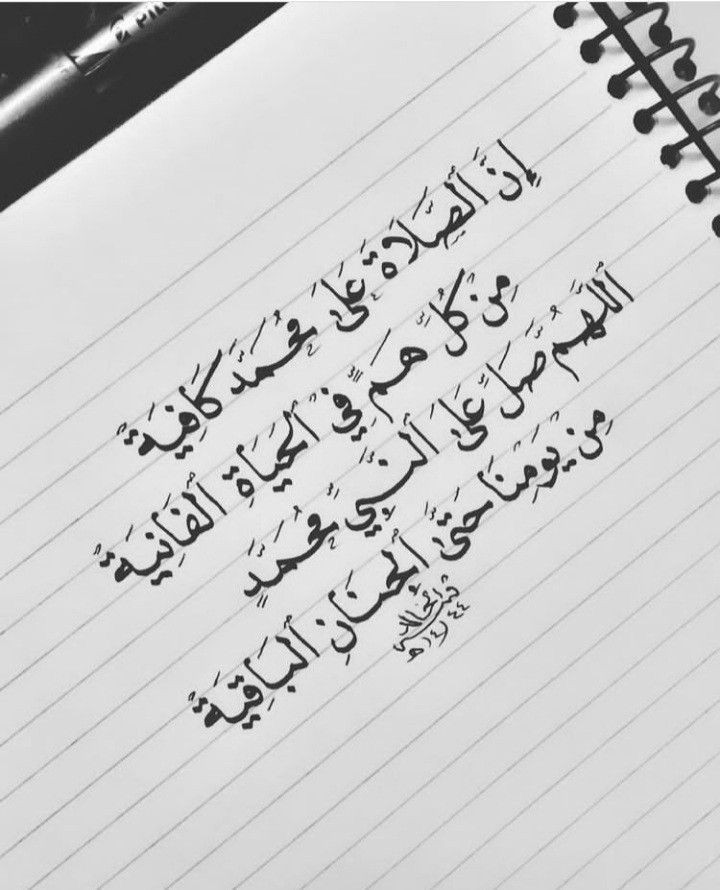 إِنَّ ٱلصَّلَاةَ عَلَى مُحَمَّدٍ كَافِيَةٌ
مِن كُلِّ هَمٍّ فِي ٱلحَيَاةِ ٱلفَانِيَةْ
ٱللَّهُمَّ صَلِّ عَلَى ٱلنَّبِيِّ مُحَمَّدٍ
مِن يَوْمِنَا حَتَّى ٱلجِنَانِ ٱلبَاقِيَةْ